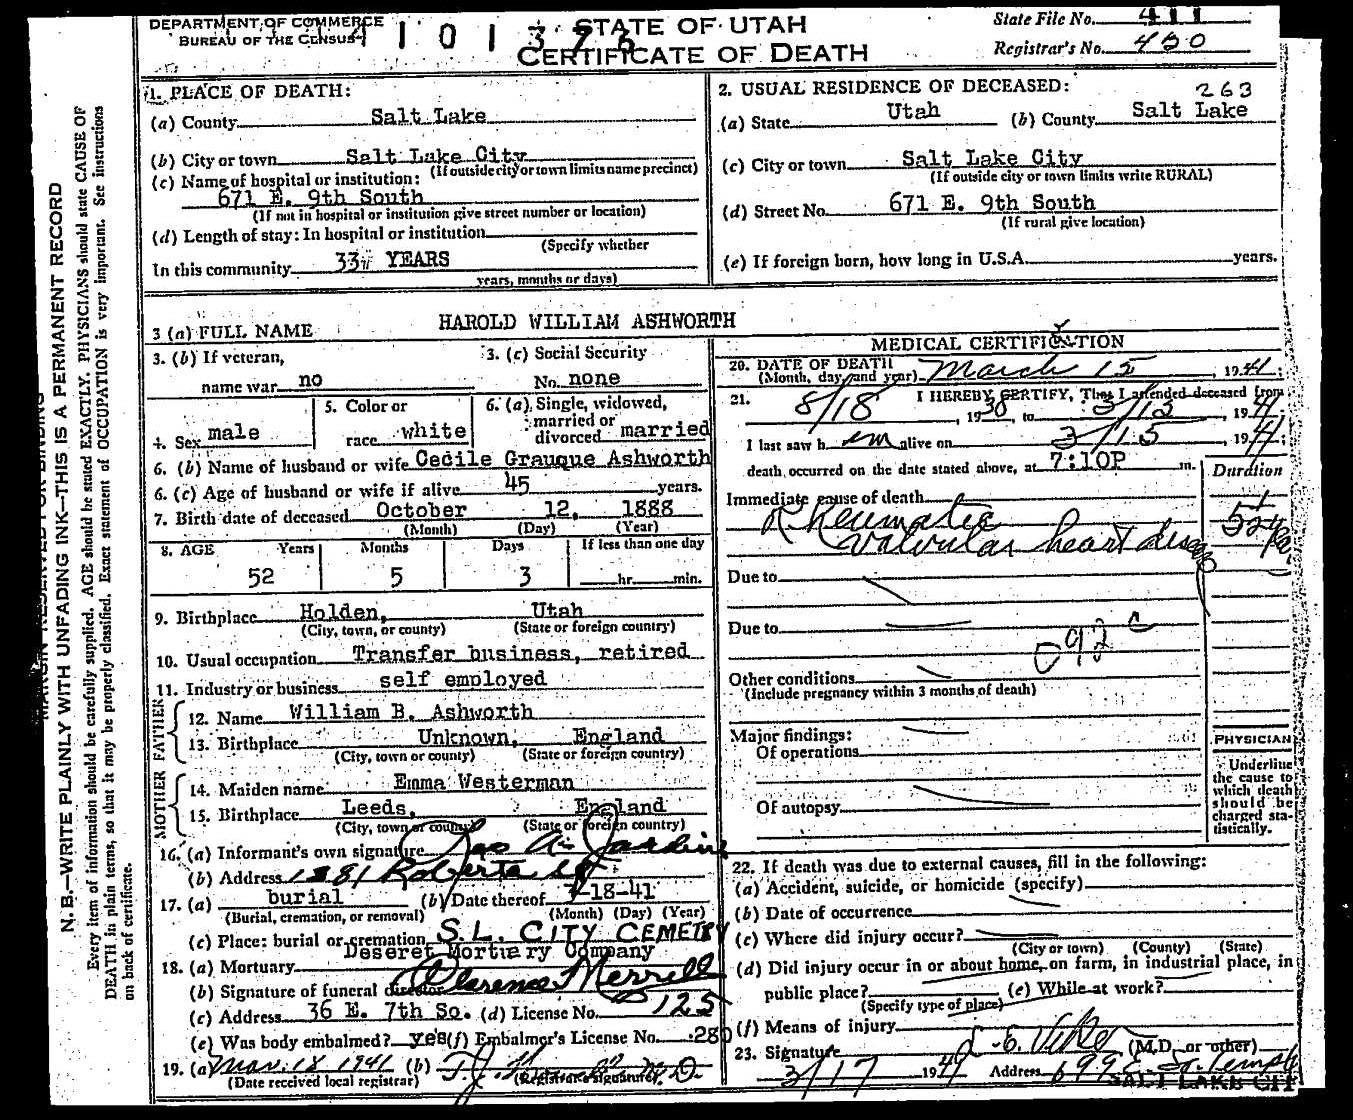 DEPARTMENT OF COMMERCE
BUREAU OF THE CENSUS
STATE OF UTAH
CERTIFICATE OF DEATH
State File No. 411
Registrar's No. 450
1. PLACE OF DEATH:
(a) County Salt Lake
(b) City or town Salt Lake City
(If outside city or town limits name precinct)
(c) Name of hospital or institution:
671 E. 9th South
(If not in hospital or institution give street number or location)
(d) Length of stay: In hospital or institution
(Specify whether
In this community 33 YEARS
years, months or days)
2. USUAL RESIDENCE OF DECEASED: 263
(a) State Utah (b) County Salt Lake
(c) City or town Salt Lake City
(If outside city or town limits write RURAL)
(d) Street No. 671 E. 9th South
(If rural give location)
(e) If foreign born, how long in U.S.A. years.
3 (a) FULL NAME HAROLD WILLIAM ASHWORTH
3. (b) If veteran,
name war no
3. (c) Social Security
No. none
4. Sex male
5. Color or
race white
6. (a) Single, widowed,
married or
divorced married
6. (b) Name of husband or wife Cecile Grauque Ashworth
6. (c) Age of husband or wife if alive 45 years.
7. Birth date of deceased October 12, 1888
(Month) (Day) (Year)
8. AGE Years Months Days If less than one day
52 5 3 hr. min.
9. Birthplace Holden, Utah
(City, town, or county) (State or foreign country)
10. Usual occupation Transfer business, retired
11. Industry or business self employed
FATHER
12. Name William B. Ashworth
13. Birthplace Unknown, England
(City, town or county) (State or foreign country)
MOTHER
14. Maiden name Emma Westerman
15. Birthplace Leeds, England
(City, town or county) (State or foreign country)
16. (a) Informant's own signature Jardine
(b) Address 1381 Roberta St
17. (a) burial (b) Date thereof 3-18-41
(Burial, cremation, or removal) (Month) (Day) (Year)
(c) Place: burial or cremation S.L. CITY CEMETRY
18. (a) Mortuary Deseret Mortuary Company
(b) Signature of funeral director Clarence Merrell
(c) Address 36 E. 7th So. (d) License No. 125
(e) Was body embalmed? yes (f) Embalmer's License No. 280
19. (a) Mar. 18 1941 (b) M.D.
(Date received local registrar) (Registrar's signature)
MEDICAL CERTIFICATION
20. DATE OF DEATH
(Month, day, and year) March 15, 1941;
21. I HEREBY CERTIFY, That I attended deceased from
8/18, 1930, to 3/15, 1941
I last saw h im alive on 3/15, 1941;
death occurred on the date stated above, at 7:10P m.
Duration
Immediate cause of death
Rheumatic
valvular heart disease
Due to
Due to
092 c
Other conditions
(Include pregnancy within 3 months of death)
Major findings:
Of operations
Of autopsy
PHYSICIAN
Underline
the cause to
which death
should be
charged sta-
tistically.
22. If death was due to external causes, fill in the following:
(a) Accident, suicide, or homicide (specify)
(b) Date of occurrence
(c) Where did injury occur?
(City or town) (County) (State)
(d) Did injury occur in or about home, on farm, in industrial place, in
public place? (e) While at work?
(Specify type of place)
(f) Means of injury
23. Signature (M.D. or other)
3/17 1941 Address 699 E. So. Temple
SALT LAKE CITY
MARGIN RESERVED FOR BINDING
N. B.—WRITE PLAINLY WITH UNFADING INK—THIS IS A PERMANENT RECORD
Every item of information should be carefully supplied. AGE should be stated EXACTLY. PHYSICIANS should state CAUSE OF
DEATH in plain terms, so that it may be properly classified. Exact statement of OCCUPATION is very important. See instructions
on back of certificate.